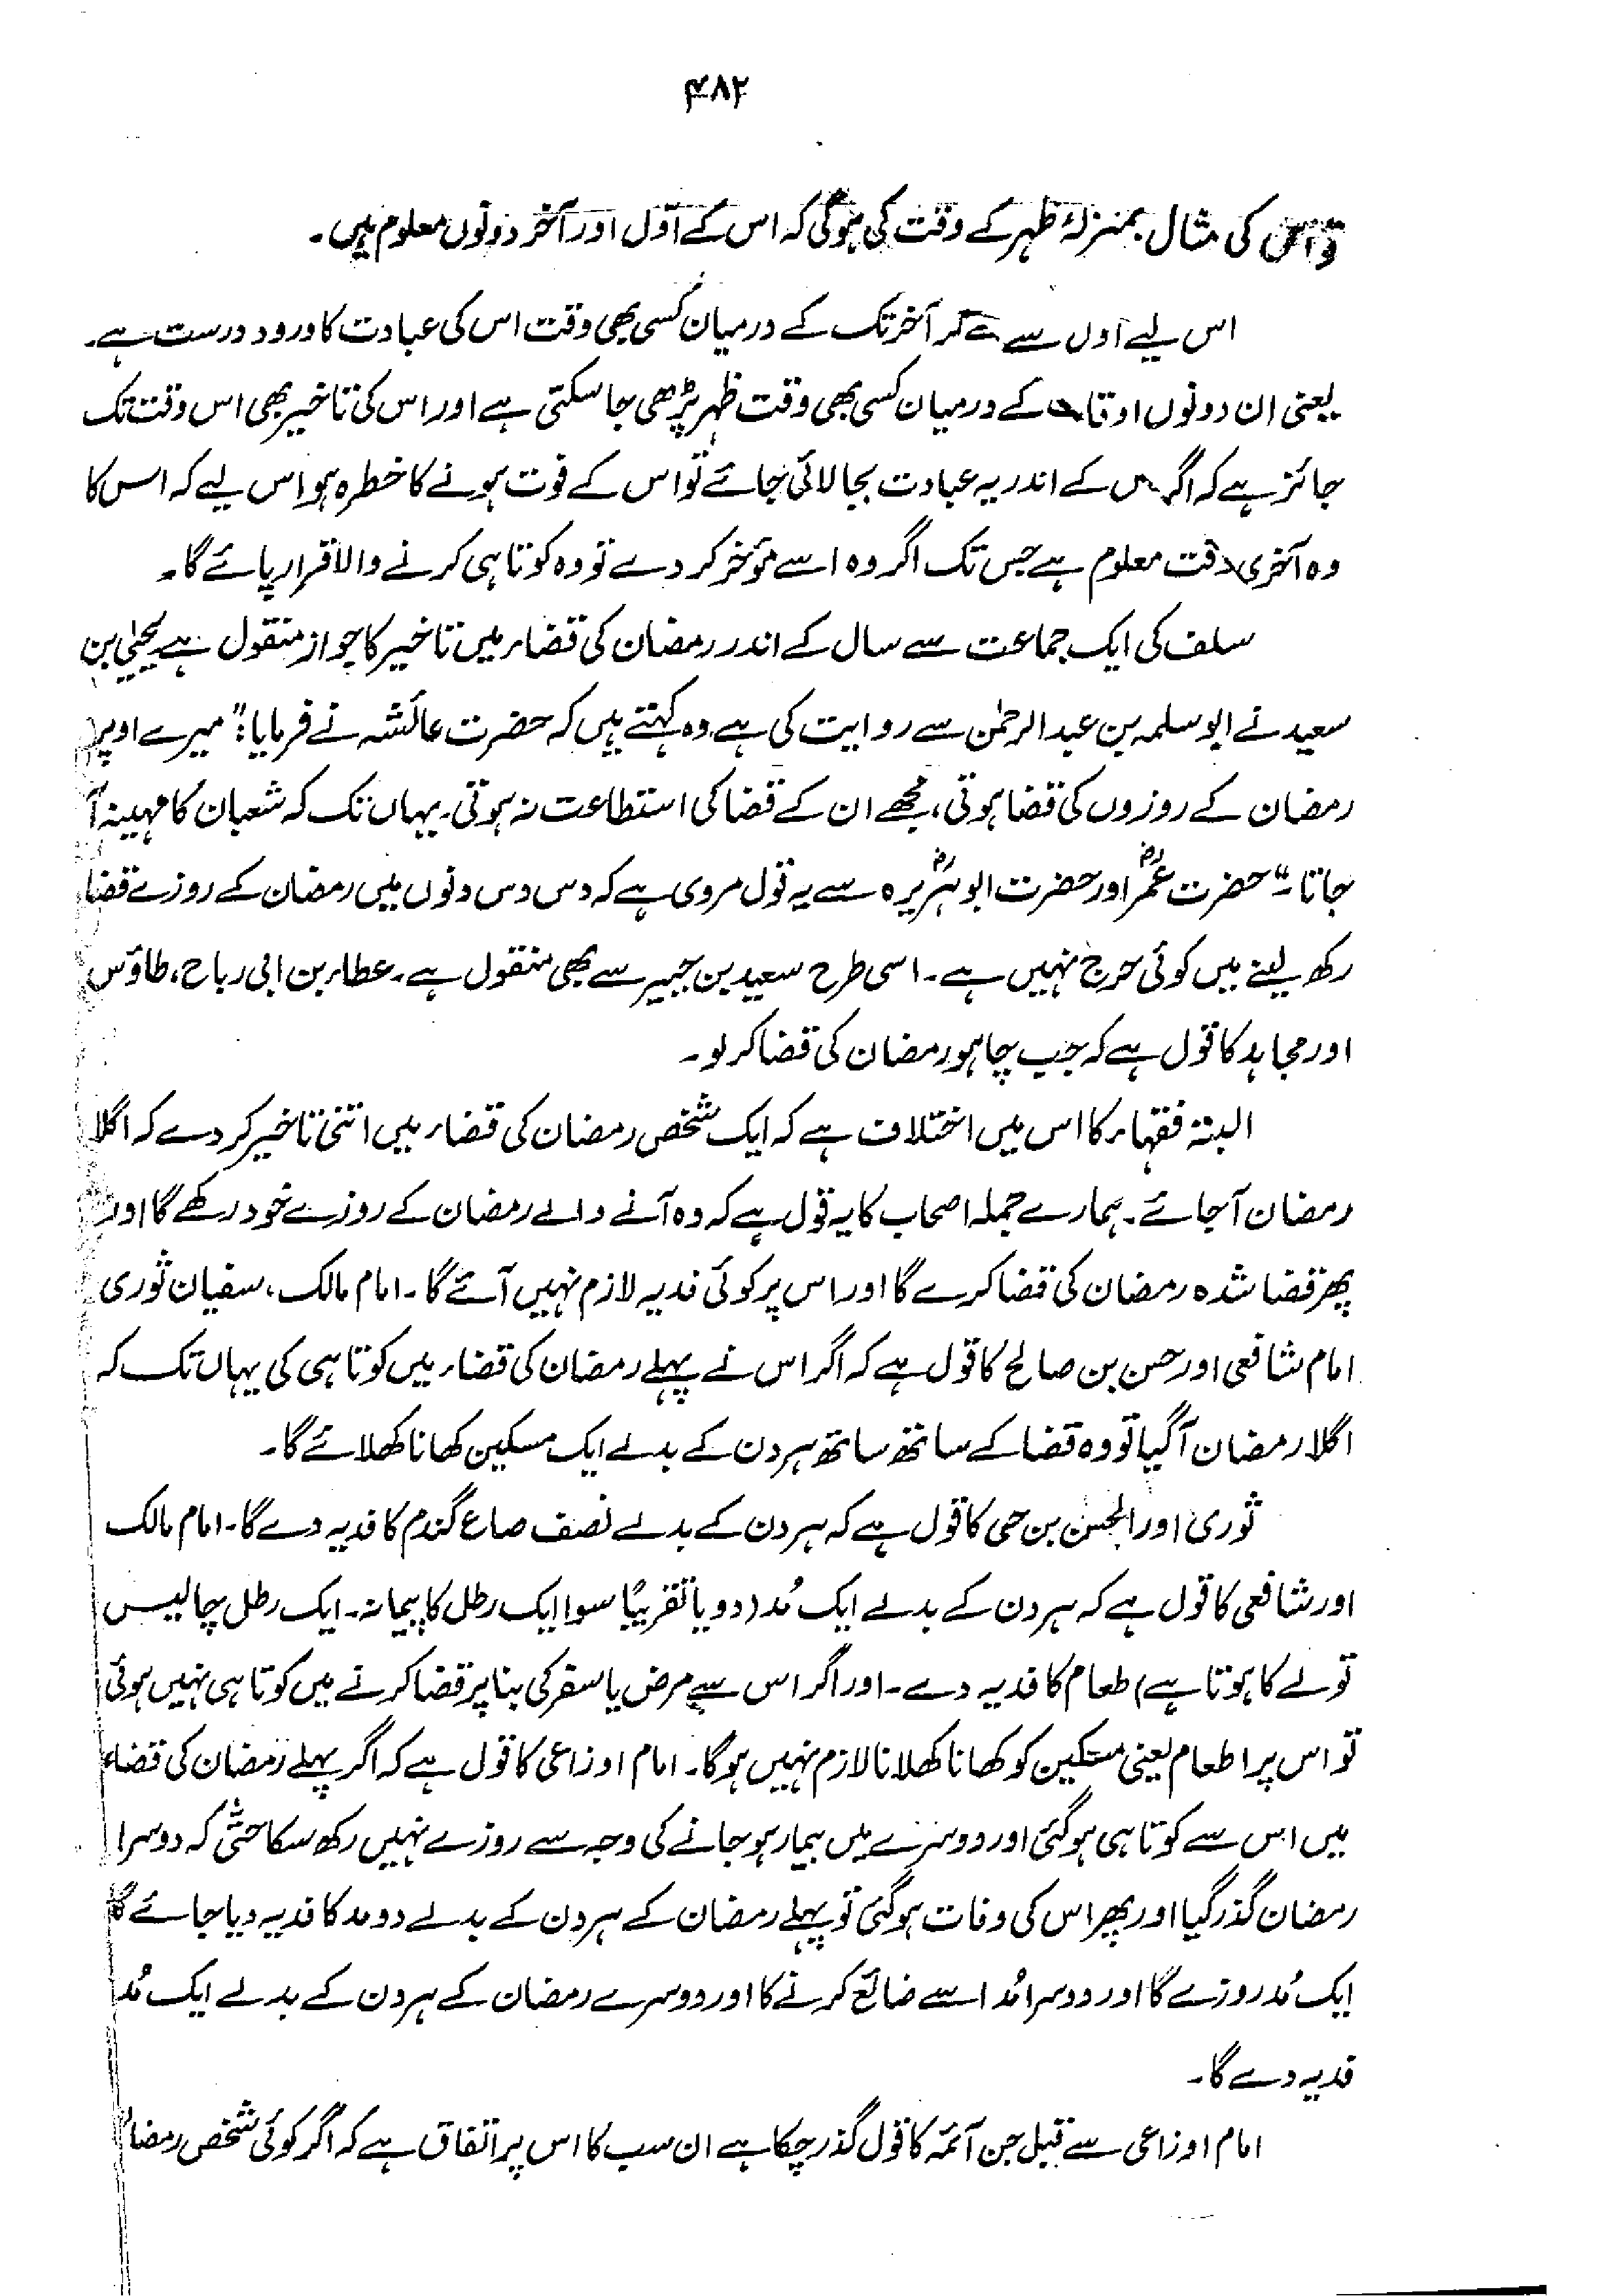 ۴۸۲
تو اس کی مثال بمنزلۂ ظہر کے وقت کی ہوگی کہ اس کے اوّل اور آخر دونوں معلوم ہیں۔
اس لیے اول سے لے کر آخر تک کے درمیان کسی بھی وقت اس کی عبادت کا ورود درست ہے۔
یعنی ان دونوں اوقات کے درمیان کسی بھی وقت ظہر پڑھی جا سکتی ہے اور اس کی تاخیر بھی اس وقت تک
جائز ہے کہ اگر اس کے اندر یہ عبادت بجا لائی جائے تو اس کے فوت ہونے کا خطرہ ہو اس لیے کہ اس کا
وہ آخری وقت معلوم ہے جس تک اگر وہ اسے مؤخر کر دے تو وہ کوتاہی کرنے والا قرار پائے گا۔
سلف کی ایک جماعت سے سال کے اندر رمضان کی قضاء میں تاخیر کا جواز منقول ہے یحییٰ بن
سعید نے ابو سلمہ بن عبدالرحمٰن سے روایت کی ہے وہ کہتے ہیں کہ حضرت عائشہ نے فرمایا: "میرے اوپر
رمضان کے روزوں کی قضا ہوتی، مجھے ان کے قضا کی استطاعت نہ ہوتی۔ یہاں تک کہ شعبان کا مہینہ آ
جاتا۔" حضرت عمرؓ اور حضرت ابوہرؓیرہ سے یہ قول مروی ہے کہ دس دس دنوں میں رمضان کے روزے قضا
رکھ لینے میں کوئی حرج نہیں ہے۔ اسی طرح سعید بن جبیر سے بھی منقول ہے۔ عطاء بن ابی رباح، طاؤس
اور مجاہد کا قول ہے کہ جب چاہو رمضان کی قضا کر لو۔
البتہ فقہاء کا اس میں اختلاف ہے کہ ایک شخص رمضان کی قضاء میں اتنی تاخیر کر دے کہ اگلا
رمضان آجائے۔ ہمارے جملہ اصحاب کا یہ قول ہے کہ وہ آنے والے رمضان کے روزے خود رکھے گا اور
پھر قضا شدہ رمضان کی قضا کرے گا اور اس پر کوئی فدیہ لازم نہیں آئے گا۔ امام مالک، سفیان ثوری
امام شافعی اور حسن بن صالح کا قول ہے کہ اگر اس نے پہلے رمضان کی قضاء میں کوتاہی کی یہاں تک کہ
اگلا رمضان آگیا تو وہ قضا کے ساتھ ساتھ ہر دن کے بدلے ایک مسکین کھانا کھلائے گا۔
ثوری اور الحسن بن حی کا قول ہے کہ ہر دن کے بدلے نصف صاع گندم کا فدیہ دے گا۔ امام مالک
اور شافعی کا قول ہے کہ ہر دن کے بدلے ایک مُد (دو یا تقریبًا سوا ایک رطل کا پیمانہ۔ ایک رطل چالیس
تولے کا ہوتا ہے) طعام کا فدیہ دے۔ اور اگر اس سے مرض یا سفر کی بنا پر قضا کرنے میں کوتاہی نہیں ہوئی
تو اس پر اطعام یعنی مسکین کو کھانا کھلانا لازم نہیں ہوگا۔ امام اوزاعی کا قول ہے کہ اگر پہلے رمضان کی قضاء
میں اس سے کوتاہی ہوگئی اور دوسرے میں بیمار ہو جانے کی وجہ سے روزے نہیں رکھ سکا حتّٰی کہ دوسرا
رمضان گذر گیا اور پھر اس کی وفات ہوگئی تو پہلے رمضان کے ہر دن کے بدلے دو مد کا فدیہ دیا جائے گا
ایک مُد روزے گا اور دوسرا مُد اسے ضائع کرنے کا اور دوسرے رمضان کے ہر دن کے بدلے ایک مُد
فدیہ دے گا۔
امام اوزاعی سے قبل جن آئمہ کا قول گذر چکا ہے ان سب کا اس پر اتفاق ہے کہ اگر کوئی شخص رمضان